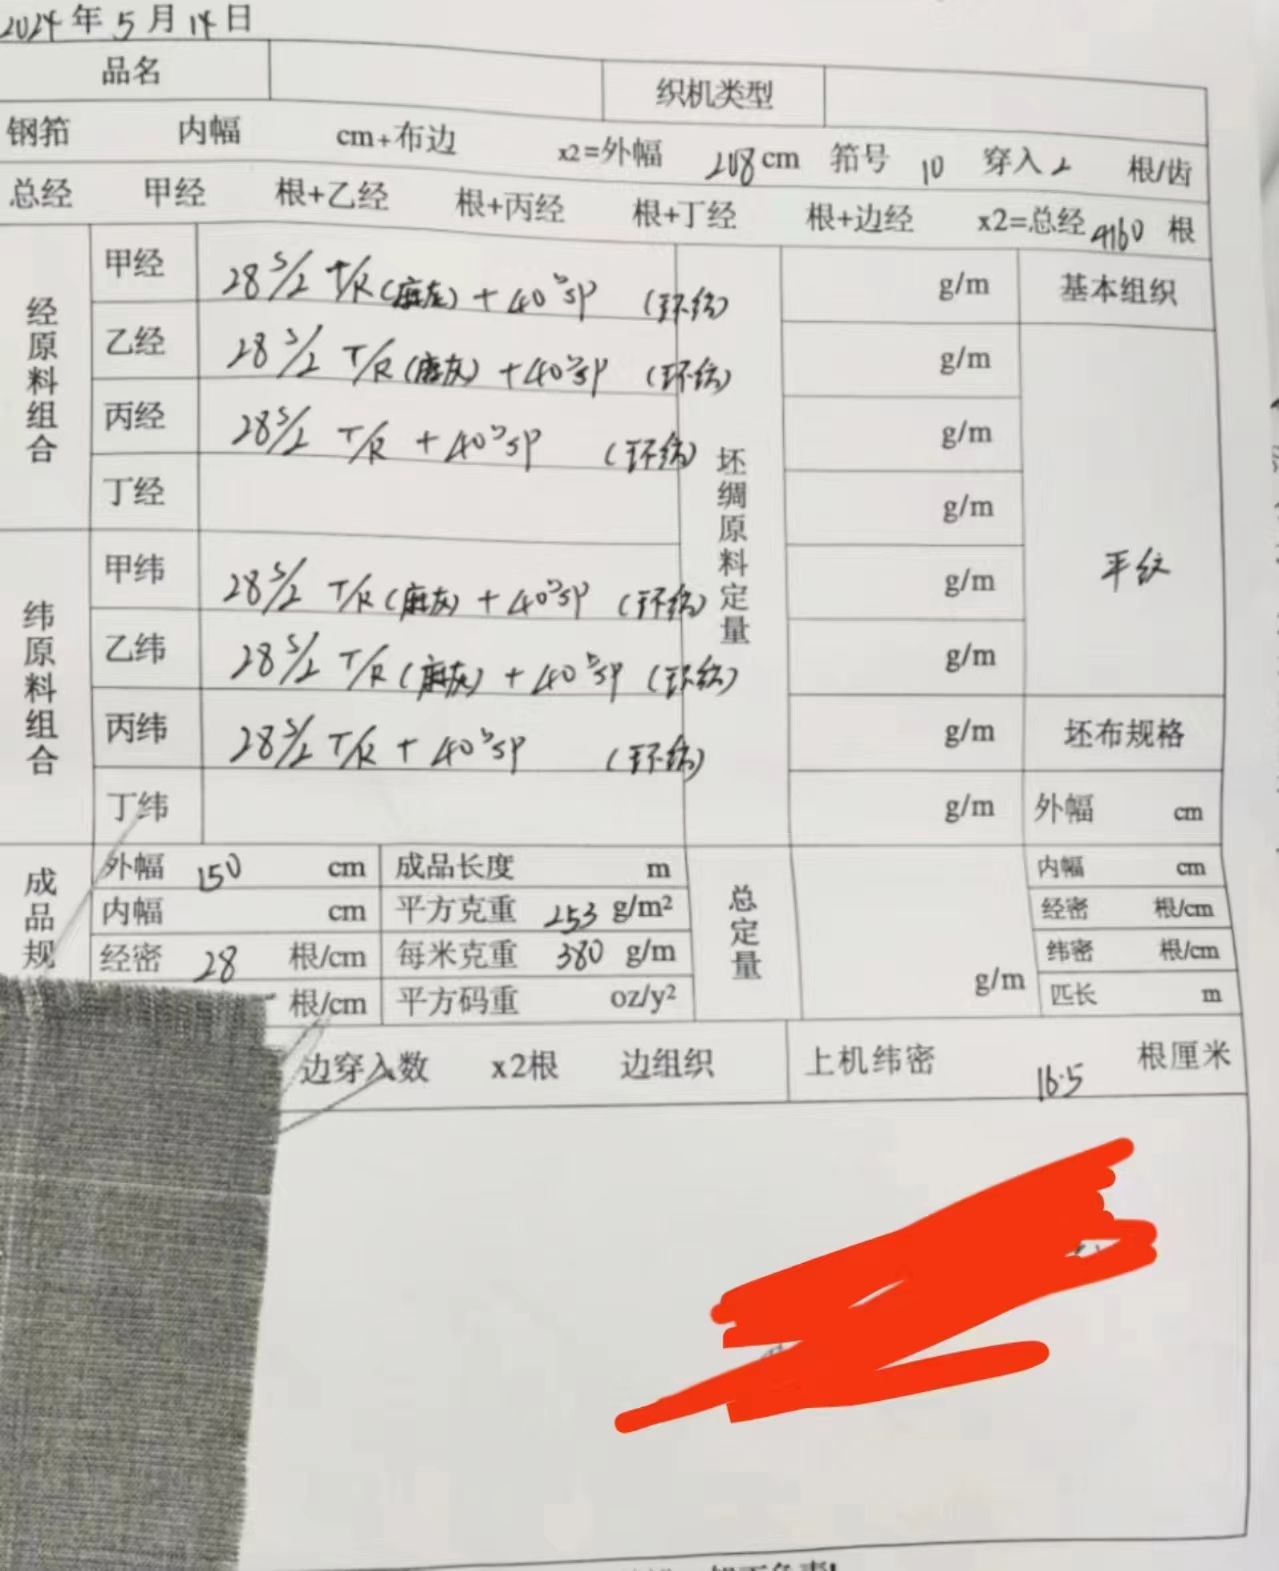 2024年5月14日
品名 织机类型
钢筘 内幅 cm+布边 x2=外幅 208cm 筘号 10 穿入2 根/齿
总经 甲经 根+乙经 根+丙经 根+丁经 根+边经 x2=总经4160 根
经原料组合
甲经 28S/2 T/R(麻灰)+40Dsp (环纺)
乙经 28S/2 T/R(麻灰)+40Dsp (环纺)
丙经 28S/2 T/R+40Dsp (环纺)
丁经
纬原料组合
甲纬 28S/2 T/R(麻灰)+40Dsp (环纺)
乙纬 28S/2 T/R(麻灰)+40Dsp (环纺)
丙纬 28S/2 T/R+40Dsp (环纺)
丁纬
坯绸原料定量
g/m
g/m
g/m
g/m
g/m
g/m
g/m
g/m
基本组织
平纹
坯布规格
外幅 cm
内幅 cm
经密 根/cm
纬密 根/cm
匹长 m
成品规
外幅 150 cm 成品长度 m
内幅 cm 平方克重 253 g/m²
经密 28 根/cm 每米克重 380 g/m
根/cm 平方码重 oz/y²
总定量 g/m
边穿入数 x2根 边组织 上机纬密 16.5 根厘米